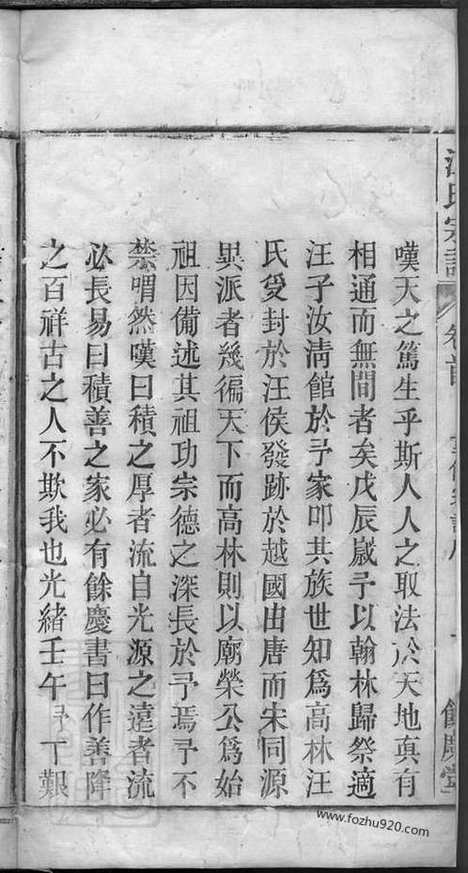 汪氏宗譜 卷首 餘慶堂
嘆天之篤生乎斯人人之取法於天地真有
相通而無間者矣戊辰歲予以翰林歸祭適
汪子汝清館於予家叩其族世知為高林汪
氏受封於汪侯發跡於越國由唐而宋同源
異派者幾徧天下而高林則以廟榮公為始
祖因備述其祖功宗德之深長於予焉予不
禁喟然嘆曰積之厚者流自光源之遠者流
必長易曰積善之家必有餘慶書曰作善降
之百祥古之人不欺我也光緒壬午予丁艱
www.fozhu920.com